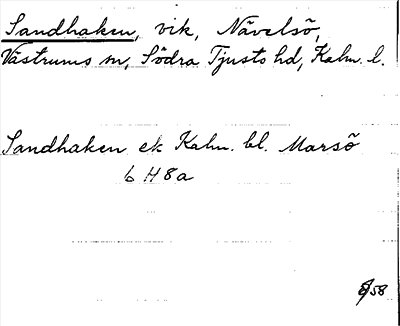 Sandhaken, vik, Nävelsö,
Västrums sn, Södra Tjusts hd, Kalm. l.
Sandhaken ek Kalm. bl. Marsö
6 H 8a
58